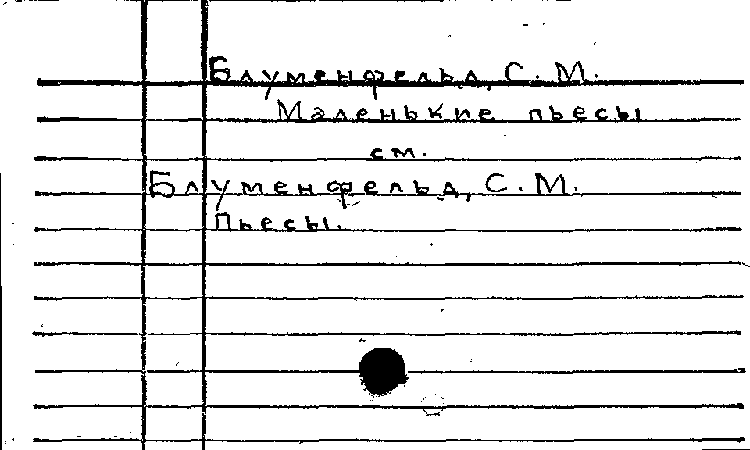 Блуменфельд, С. М.
Маленькие пьесы
см.
Блуменфельд, С. М.
Пьесы.